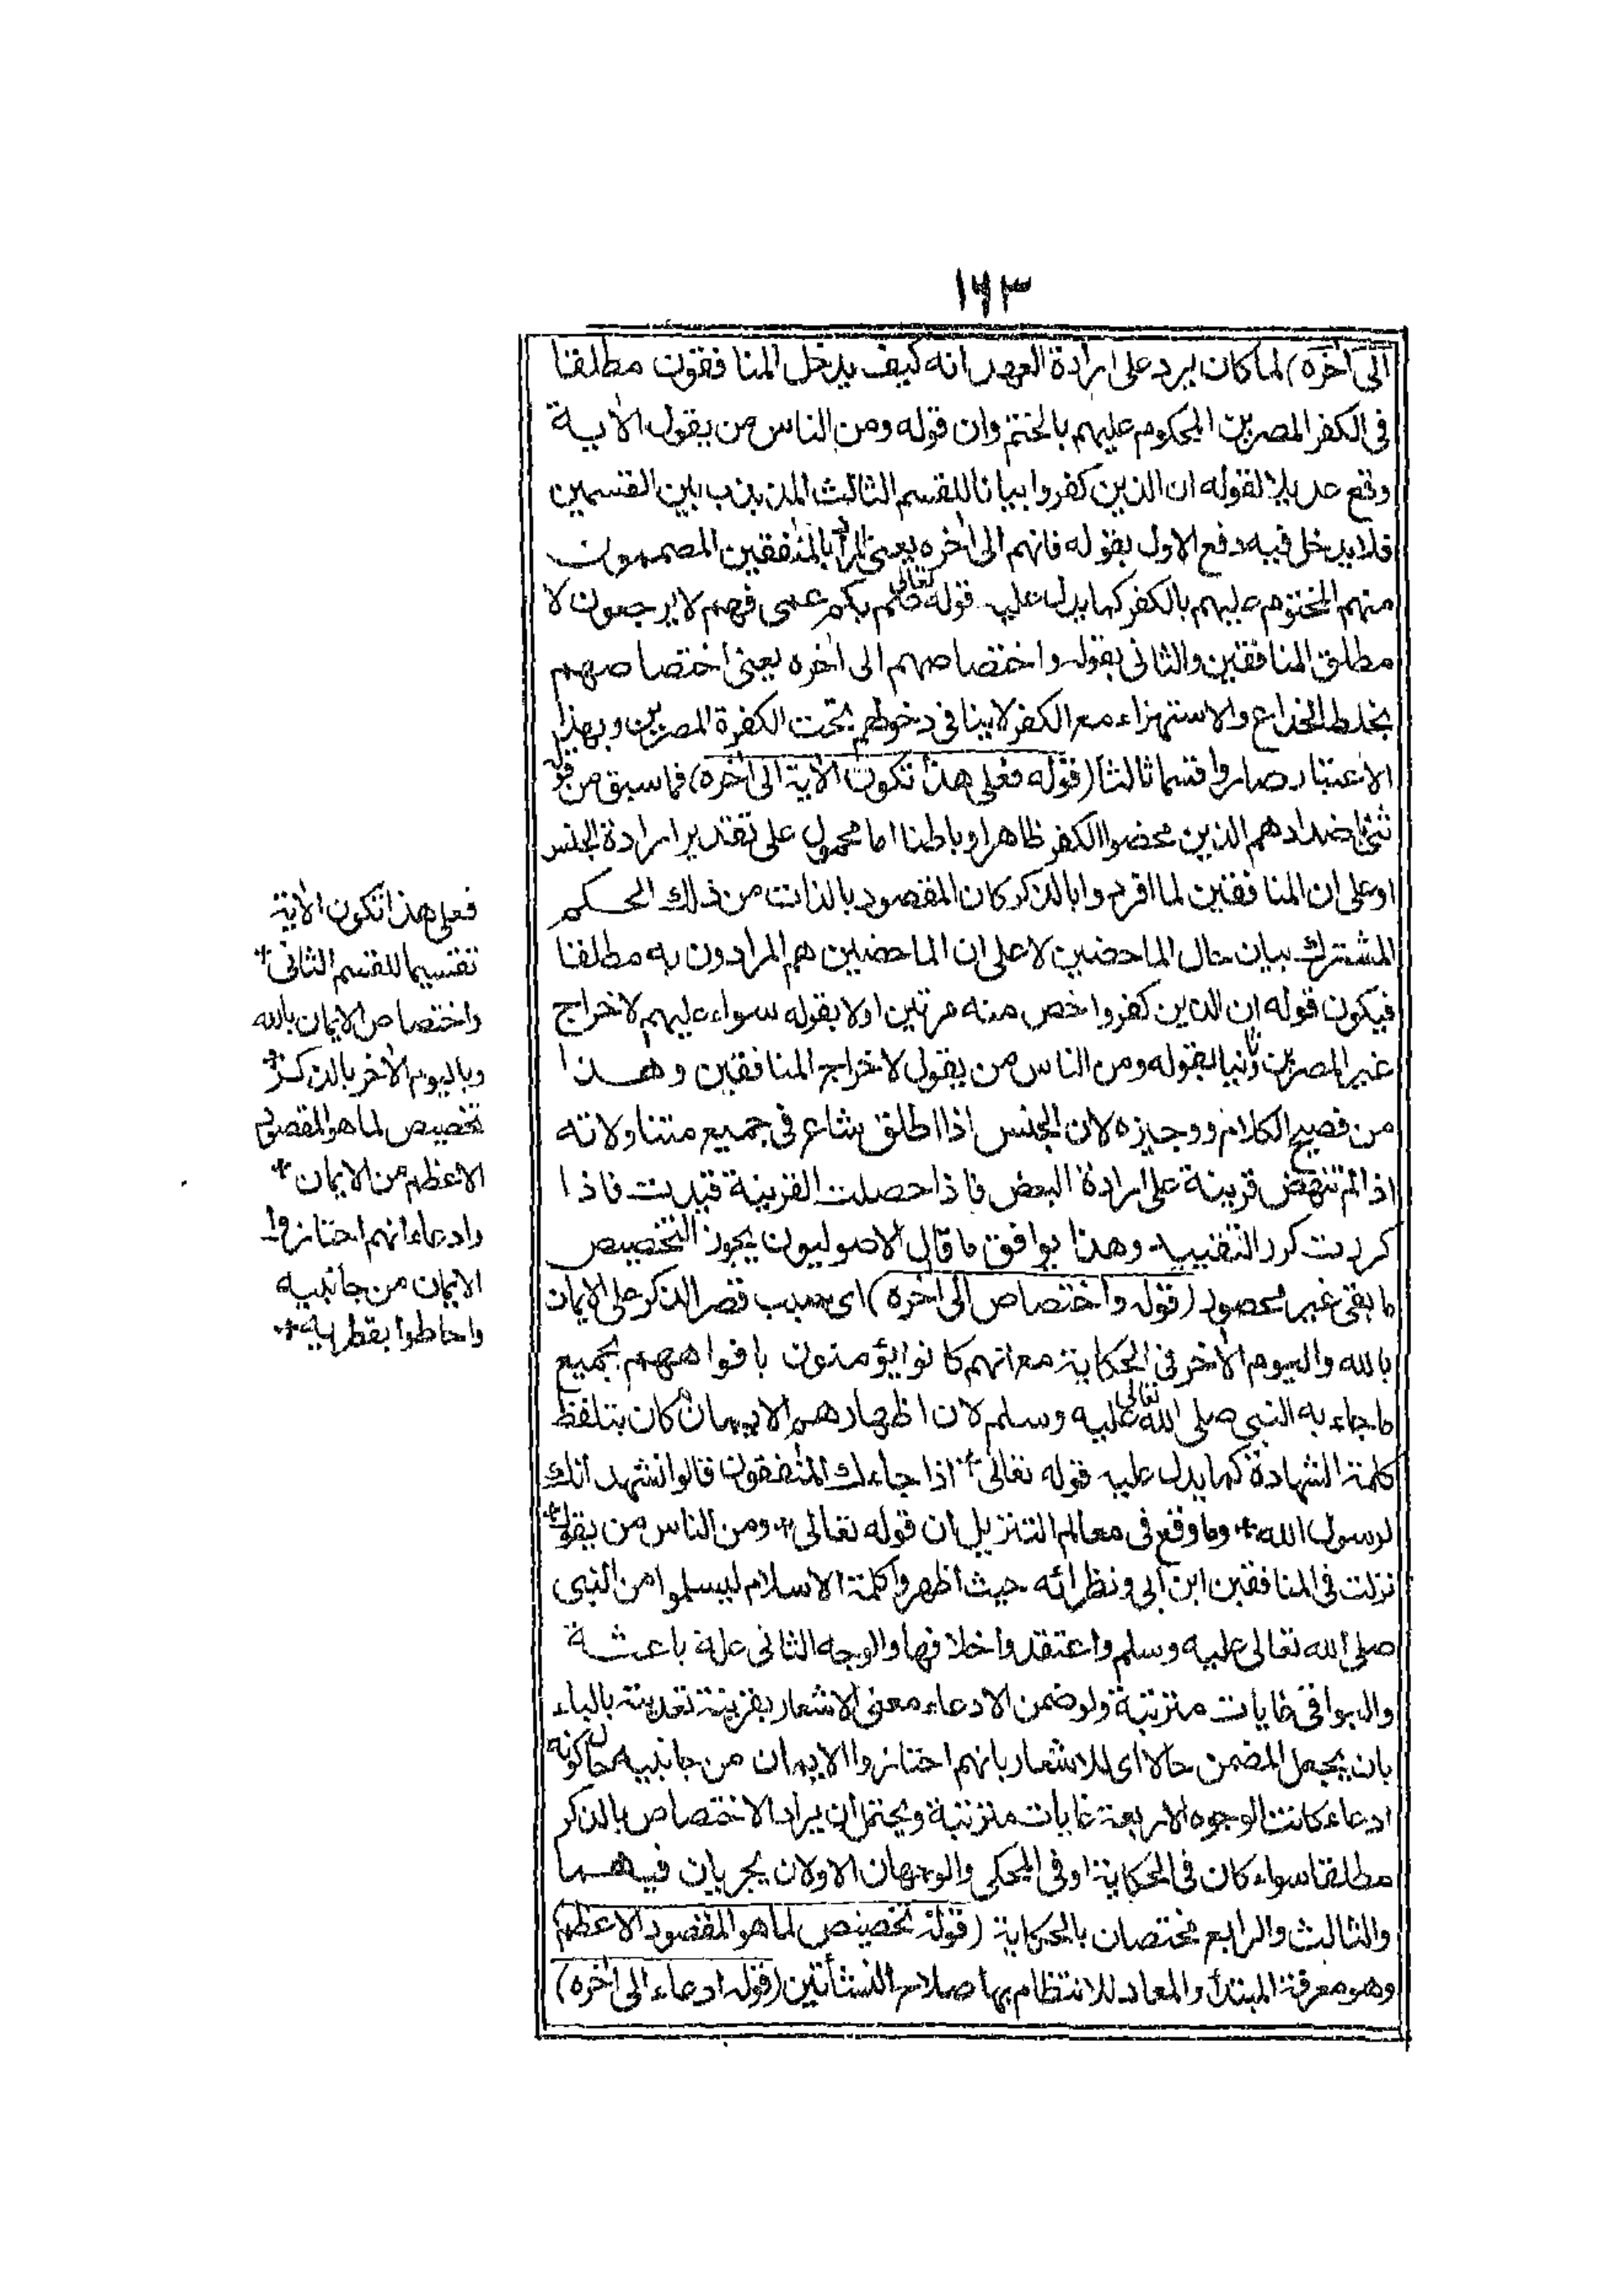 ١٦٣
الى اخره) لما كان يرد على ارادة العهد انه كيف يدخل المنافقون مطلقا
فى الكفر المصرين المحكوم عليهم بالختم وان قوله ومن الناس من يقول الاية
وقع عديلا لقوله ان الذين كفروا بيانا للقسم الثالث المذبذب بين القسمين
فلا يدخل فيه دفع الاول بقوله فانهم الى اخره يعنى المراد بالمنٰفقين المصممون
منهم المختوم عليهم بالكفر كما يدل عليه قوله تعالى صم بكم عمى فهم لا يرجعون لا
مطلق المنافقين والثانى بقوله واختصاصهم الى اخره يعنى اختصاصهم
بخلط الخداع والاستهزاء مع الكفر لا ينافى دخولهم تحت الكفرة المصرين وبهذا
الاعتبار صاروا قسما ثالثا (قوله فعلى هذا تكون الاية الى اخره) فما سبق من قوله
ثنى باضدادهم الذين محضوا الكفر ظاهرا وباطنا اما محمول على تقدير ارادة الجنس
او على ان المنافقين لما افردوا بالذكر كان المقصود بالذات من ذلك الحكم
المشترك بيان حال الماحضين لا على ان الماحضين هم المرادون به مطلقا
فيكون قوله ان الذين كفروا خص منه مرتين اولا بقوله سواء عليهم لاخراج
غير المصرين وثانيا بقوله ومن الناس من يقول لاخراج المنافقين وهذا
من فصيح الكلام ووجيزه لان الجنس اذا اطلق شاع فى جميع متناولاته
اذا لم تنهض قرينة على ارادة البعض فاذا حصلت القرينة قيدت فاذا
كررت كرر التقييد وهذا يوافق ما قال الاصوليون يجوز التخصيص
ما بقى غير محصور (قوله واختصاص الى اخره) اى سبب قصر الذكر على الايمان
بالله واليوم الاخر فى الحكاية مع انهم كانوا يؤمنون بافواههم بجميع
ما جاء به النبى صلى الله تعالى عليه وسلم لان اظهارهم الايمان كان بتلفظ
كلمة الشهادة كما يدل عليه قوله تعالى اذا جاءك المنٰفقون قالوا نشهد انك
لرسول الله وما وقع فى معالم التنزيل ان قوله تعالى ومن الناس من يقول
نزلت فى المنافقين ابن ابى ونظرائه حيث اظهروا كلمة الاسلام ليسلموا من النبى
صلى الله تعالى عليه وسلم واعتقدوا خلافها والوجه الثانى علة باعثة
والبواقى غايات مترتبة ولو ضمن الادعاء معنى الاشعار بقرينة تعديته بالباء
بان يجعل المضمن حالا اى للاشعار بانهم احتازوا الايمان من جانبيه حال كونه
ادعاء كانت الوجوه الاربعة غايات مترتبة ويحتمل ان يراد الاختصاص بالذكر
مطلقا سواء كان فى الحكاية او فى المحكى والوجهان الاولان يجريان فيهما
والثالث والرابع مختصان بالحكاية (قوله تخصيص لما هو المقصود الاعظم)
وهو معرفة المبتدأ والمعاد للانتظام بها صلاح النشأتين (قوله ادعاء الى اخره)
فعلى هذا تكون الاية
تقسيما للقسم الثانى
واختصاص الايمان بالله
وباليوم الاخر بالذكر
تخصيص لما هو المقصود
الاعظم من الايمان
وادعاء انهم احتازوا
الايمان من جانبيه
واحاطوا بقطريه